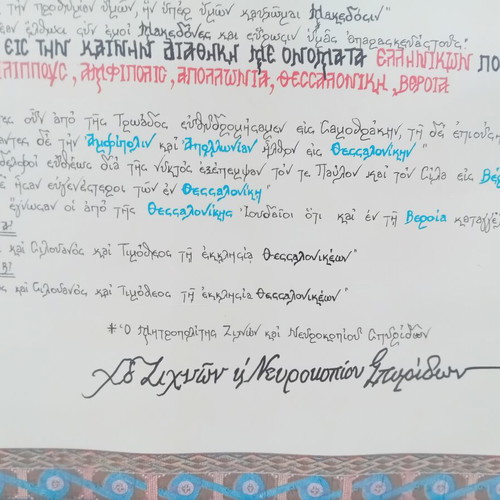 τὴν προθυμίαν ὑμῶν, ἣν ὑπὲρ ὑμῶν καυχῶμαι Μακεδόσιν"
ἔλθωσι σὺν ἐμοὶ Μακεδόνες καὶ εὕρωσιν ὑμᾶς ἀπαρασκευάστους"
ΕΙΣ ΤΗΝ ΚΑΙΝΗΝ ΔΙΑΘΗΚΗ ΜΕ ΟΝΟΜΑΤΑ ΕΛΛΗΝΙΚΩΝ ΠΟ
ΛΙΠΠΟΥΣ, ΑΜΦΙΠΟΛΙΣ, ΑΠΟΛΛΩΝΙΑ, ΘΕΣΣΑΛΟΝΙΚΗ, ΒΕΡΟΙΑ
ες οὖν ἀπὸ τῆς Τρωάδος εὐθυδρομήσαμεν εἰς Σαμοθράκην, τῇ δὲ ἐπιούσῃ
αντες δὲ τὴν Ἀμφίπολιν καὶ Ἀπολλωνίαν ἦλθον εἰς Θεσσαλονίκην"
δελφοὶ εὐθέως διὰ τῆς νυκτὸς ἐξέπεμψαν τόν τε Παῦλον καὶ τὸν Σίλα εἰς Βέρ
ἦσαν εὐγενέστεροι τῶν ἐν Θεσσαλονίκη"
ἔγνωσαν οἱ ἀπὸ τῆς Θεσσαλονίκης Ἰουδαῖοι ὅτι καὶ ἐν τῇ Βεροία καταγγέλ
Α'
ς καὶ Σιλουανὸς καὶ Τιμόθεος τῇ ἐκκλησίᾳ Θεσσαλονικέων"
Β'
ς καὶ Σιλουανὸς καὶ Τιμόθεος τῇ ἐκκλησίᾳ Θεσσαλονικέων"
Ὁ Μητροπολίτης Ζιχνῶν καὶ Νευροκοπίου Σπυρίδων
Ζιχνῶν κ Νευροκοπίου Σπυρίδων